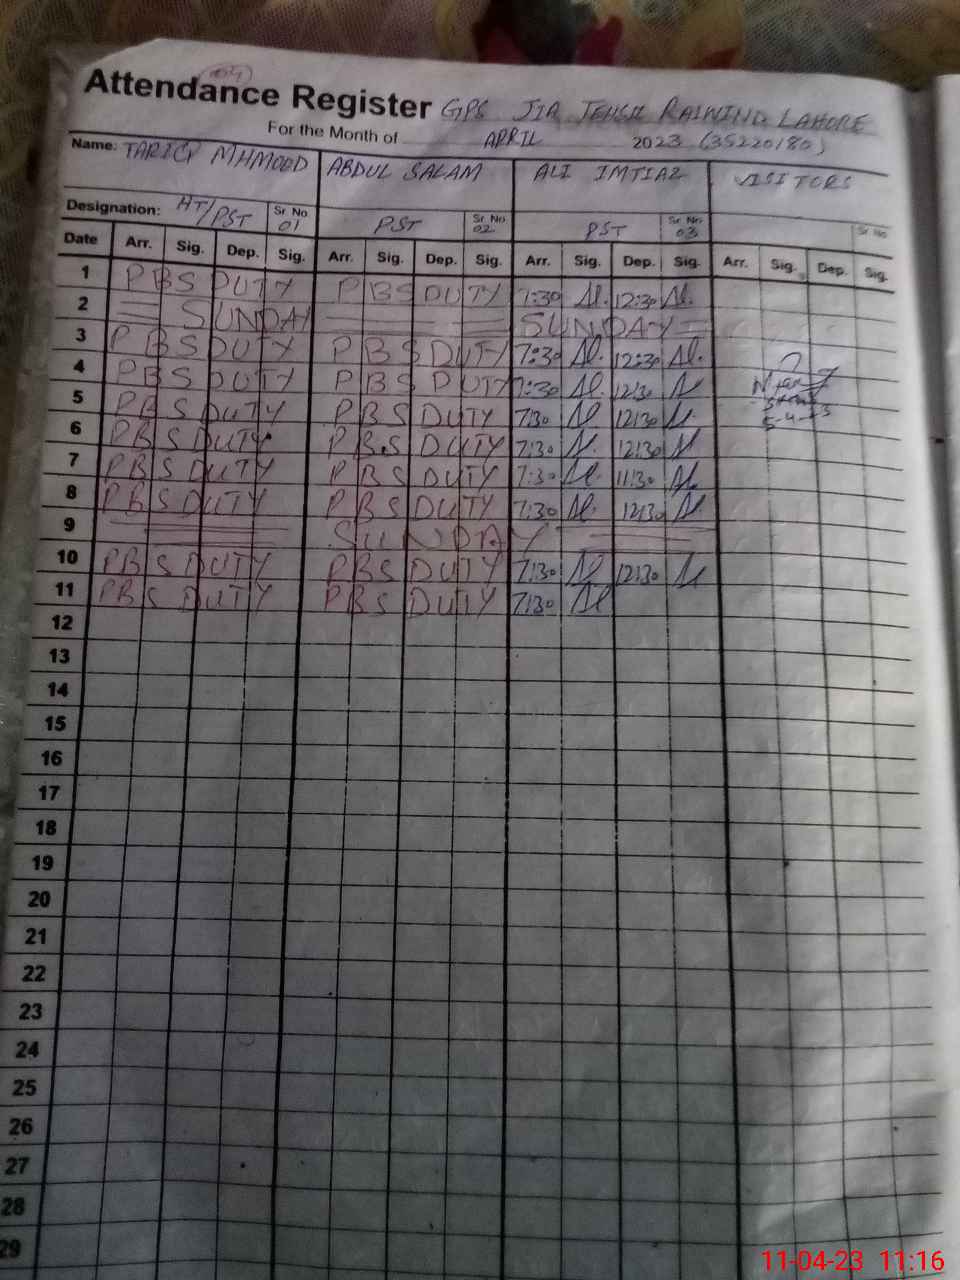 Attendance Register GPS JIA TEHSIL RAIWIND LAHORE
For the Month of APRIL 2023 (35220180)
Name: TARIQ MHMOOD ABDUL SALAM ALI IMTIAZ VISITORS
Designation: HT/PST Sr. No 01 PST Sr. No 02 PST Sr. No 03 Sr. No
Date Arr. Sig. Dep. Sig. Arr. Sig. Dep. Sig. Arr. Sig. Dep. Sig. Arr. Sig. Dep. Sig.
1 PBS DUTY PBS DUTY 7:30 12:30
2 SUNDAY SUNDAY
3 PBS DUTY PBS DUTY 7:30 12:30
4 PBS DUTY PBS DUTY 7:30 12:30
5 PBS DUTY PBS DUTY 7:30 12:30 5-4-23
6 PBS DUTY PBS DUTY 7:30 12:30
7 PBS DUTY PBS DUTY 7:30 11:30
8 PBS DUTY PBS DUTY 7:30 12:30
9 SUNDAY
10 PBS DUTY PBS DUTY 7:30 12:30
11 PBS DUTY PBS DUTY 7:30
12
13
14
15
16
17
18
19
20
21
22
23
24
25
26
27
28
29
11-04-23 11:16